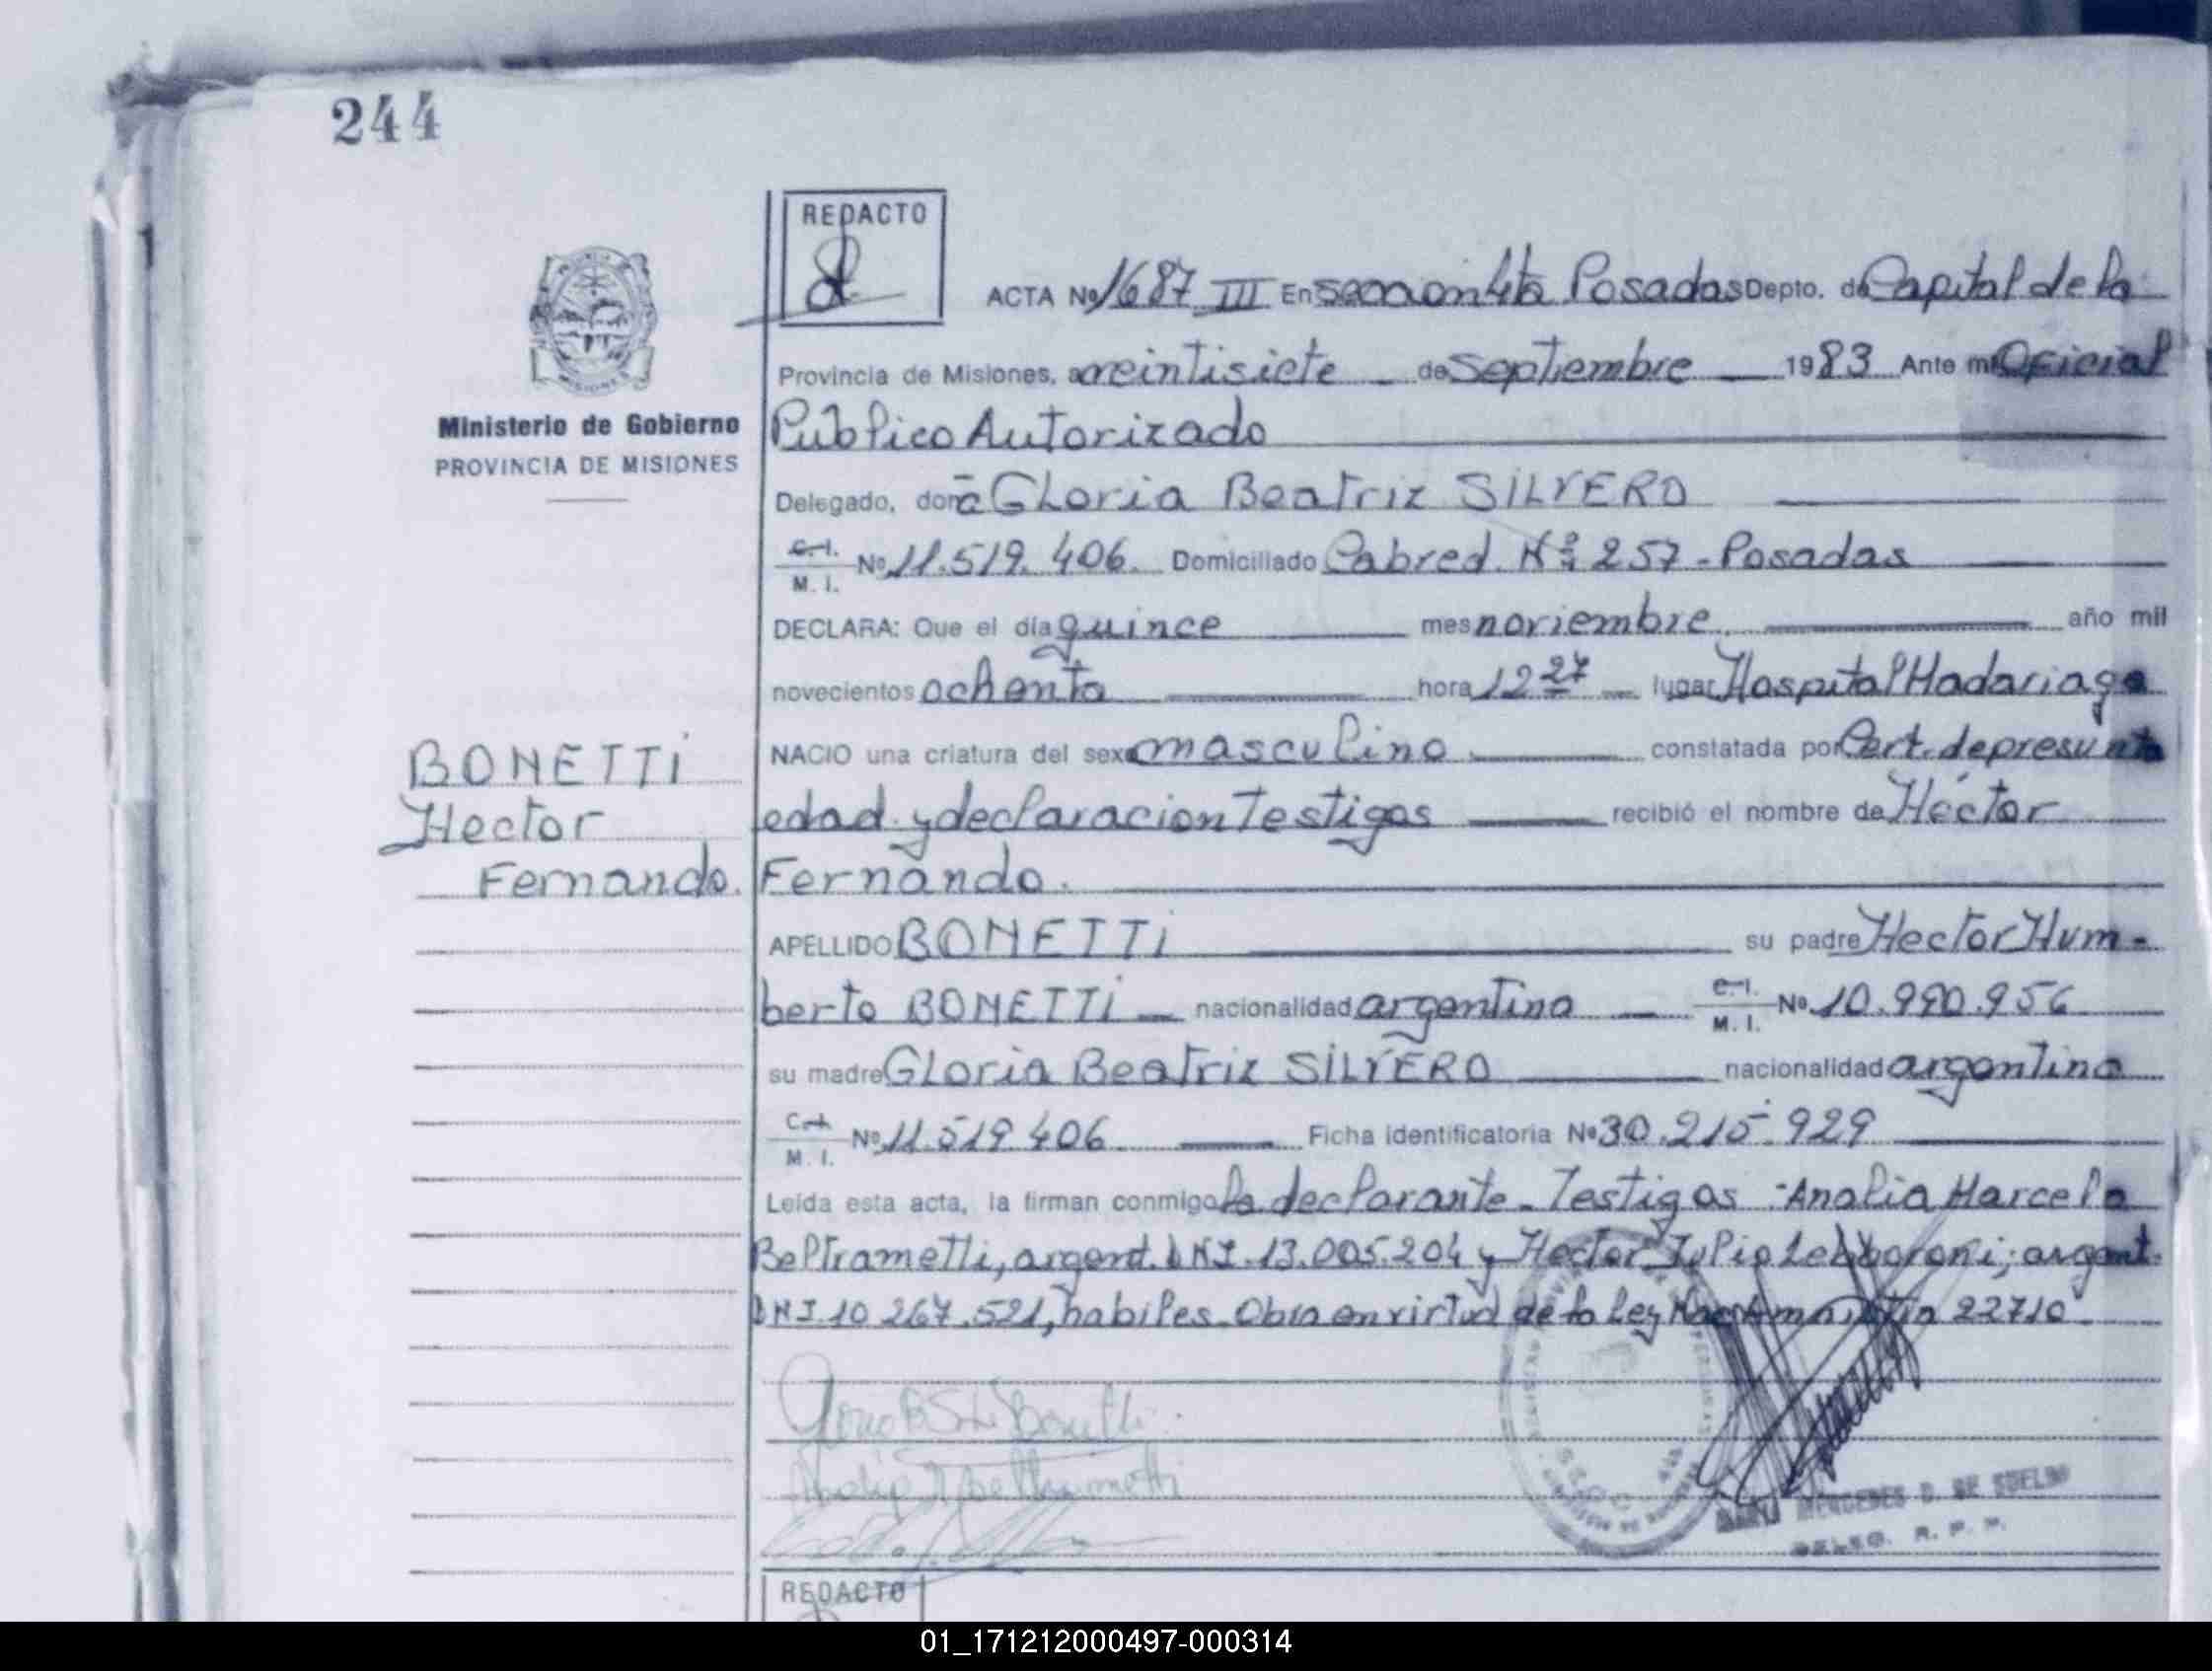 244
REDACTO
ACTA Nº 1687 III En sección 4ta Posadas Depto. de Capital de la
Provincia de Misiones, a veintisiete de septiembre 1983 Ante mi Oficial
Ministerio de Gobierno
Público Autorizado
PROVINCIA DE MISIONES
Delegado, doña Gloria Beatriz SILVERO
C.I. M. I. Nº 11.519.406. Domiciliado Cabred. Nº 257 - Posadas
DECLARA: Que el día quince mes noviembre año mil
novecientos ochenta hora 12 27 lugar Hospital Madariaga
BONETTI
NACIO una criatura del sexo masculino constatada por Cert. de presunta
Hector
edad y declaracion Testigos recibió el nombre de Héctor
Fernando.
Fernando.
APELLIDO BONETTI su padre Hector Hum-
berto BONETTI nacionalidad argentina C.I. M. I. Nº 10.990.956
su madre Gloria Beatriz SILVERO nacionalidad argentina
C.I. M. I. Nº 11.519.406 Ficha identificatoria Nº 30.215.929
Leída esta acta, la firman conmigo la declarante - Testigos: Analia Marcela
Beltrametti, argent. DNI. 13.005.204 y Hector Julio argent.
DNI. 10 267.521, habiles. Obra en virtud de la Ley Nac Amnistia 22710
MERCEDES D. DE SUELDO
DELEG. R. P. P.
REDACTO
01_171212000497-000314